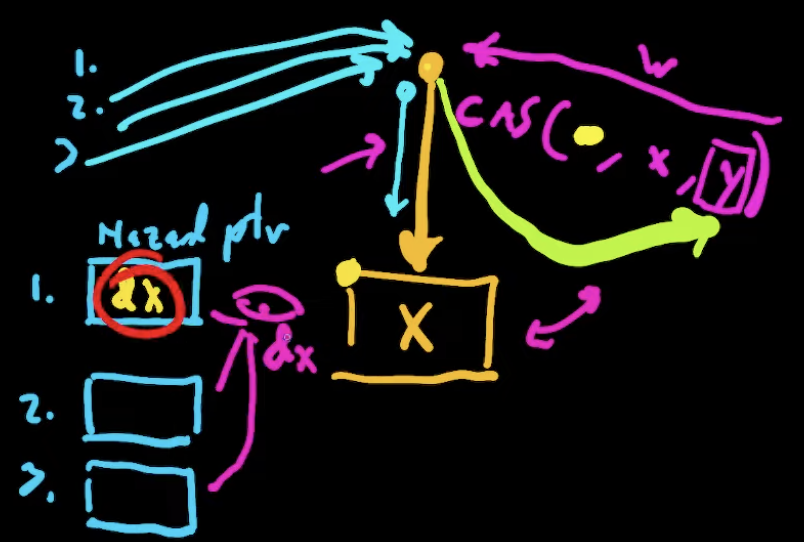 1.
2.
3
W
CAS( , x, y)
Hazard ptr
1. &x
X
&x
2.
3.